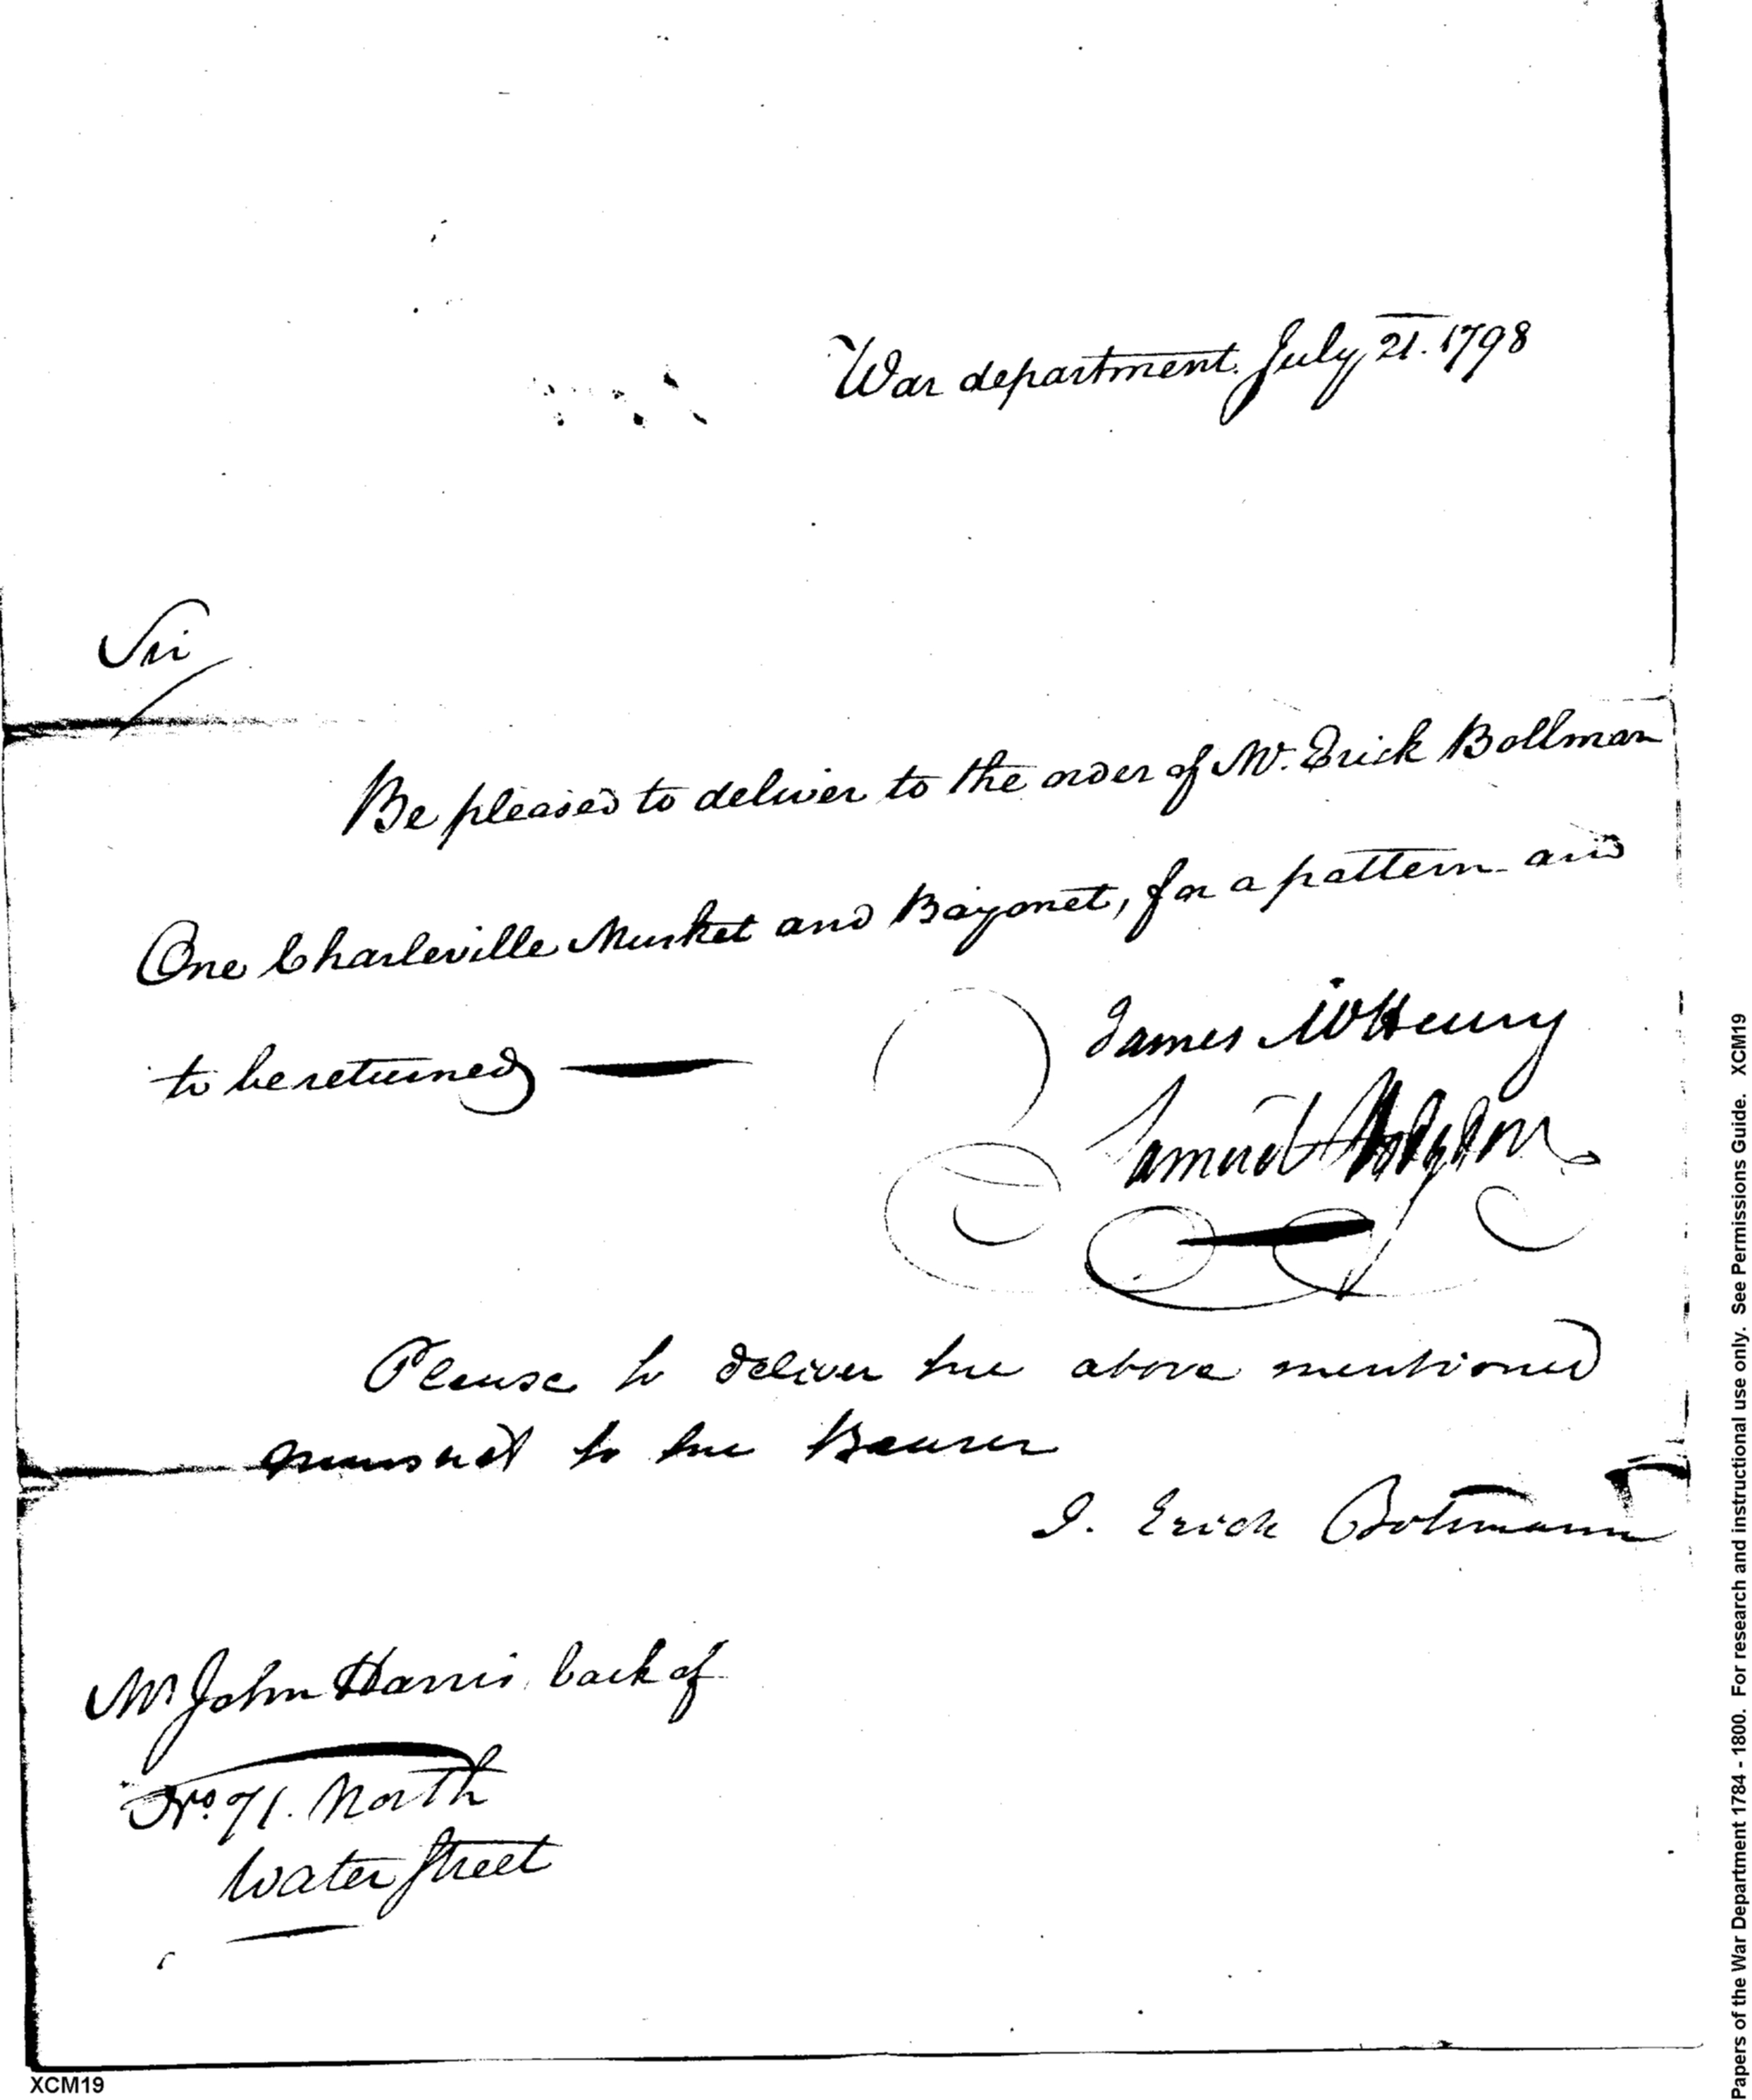 War department July 21. 1798
Sir
Be pleased to deliver to the order of Mr. Erick Bollman
One Charleville Musket and Bayonet, for a pattern and
to be returned
James McHenry
Samuel Hodgdon
Please to deliver the above mentioned
musket to the Bearer
J. Erick Bollmann
Mr John Harris, back of
No. 71. North
Water Street
XCM19
Papers of the War Department 1784 - 1800. For research and instructional use only. See Permissions Guide. XCM19